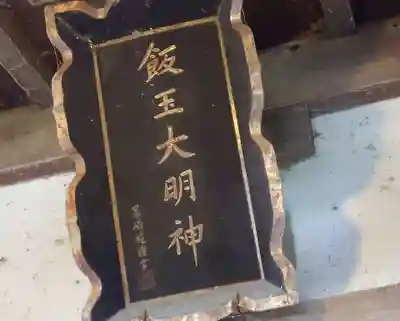 飯玉大明神